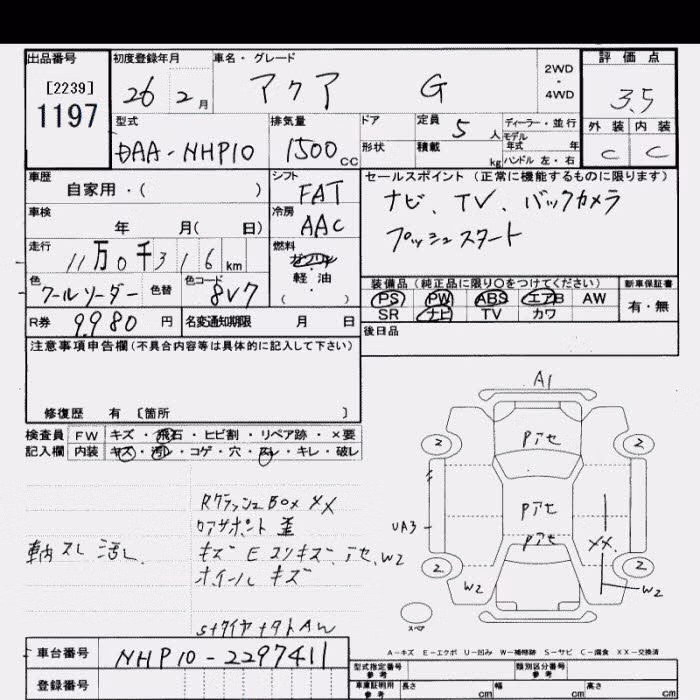 出品番号 初度登録年月 車名・グレード 評価点
[2239] 26 2月 アクア G 2WD・4WD 3.5
1197
外装 内装
型式 排気量 ドア 定員 5人 ディーラー・並行 C C
モデル年式 年
DAA-NHP10 1500cc 形状 積載 kg ハンドル 左・右
車歴 シフト セールスポイント(正常に機能するものに限ります)
自家用・( ) FAT ナビ、TV、バックカメラ
車検 冷房 プッシュスタート
年 月( 日) AAC
走行 燃料
11万0千316km ガソリン
軽・油
色 色替 色コード ( )
クールソーダー 8V7
装備品(純正品に限り○をつけてください) 新車保証書
PS PW ABS エアB AW 有・無
SR ナビ TV カワ
R券 9980円 名変通知期限 月 日 後日品
注意事項申告欄(不具合内容等は具体的に記入して下さい)
修復歴 有 [箇所 ]
検査員 FW キズ・飛石・ヒビ割・リペア跡・×要
記入欄 内装 キズ・汚レ・コゲ・穴・スレ・キレ・破レ
RクラッシュBOX XX
コアサポート 歪
キズ E スリキズ、アセ、W2
ホイールキズ
A1
Pアセ
2 2
Pアセ
UA3 Pアセ XX
2 2
W2 W2
スペア
A-キズ E-エクボ U-凹み W-補修跡 S-サビ C-腐食 XX-交換済
車台番号 NHP10-2297411
登録番号
型式指定番号 参考 類別区分番号 参考
車庫証明用 参考 長さ cm 幅 cm 高さ cm